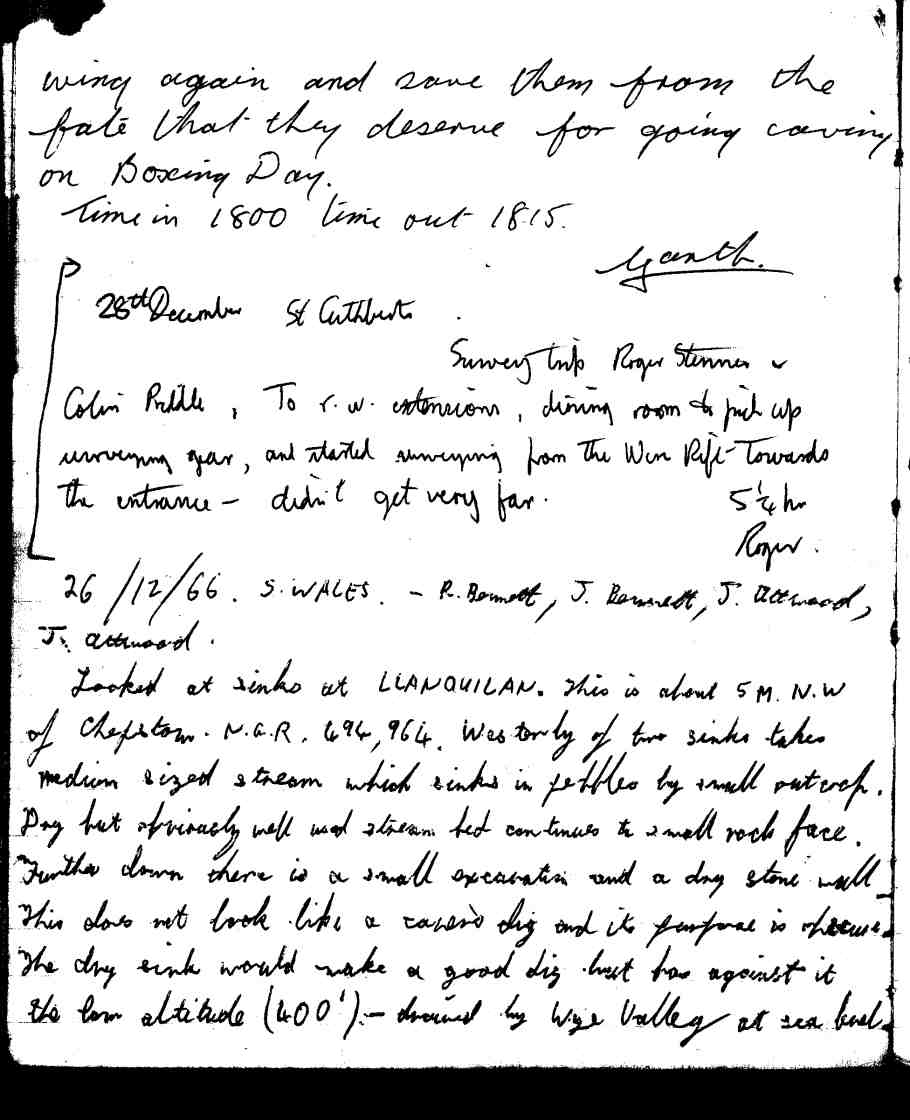 wing again and save them from the
fate that they deserve for going caving
on Boxing Day.
Time in 1800 time out 1815.
Garth.
28th December St Cuthberts
Survey trip Roger Stenner &
Colin Priddle, To r.w. extensions, dining room to pick up
surveying gear, and started surveying from the Wire Rift Towards
the entrance – didn't get very far.
5¼ hr
Roger.
26/12/66. S. WALES. – R. Bennett, J. Bennett, J. Attwood,
J. Attwood.
Looked at sinks at LLANQUILAN. This is about 5 M. N.W
of Chepstow. N.G.R. 494,964. Westerly of two sinks takes
medium sized stream which sinks in pebbles by small outcrop.
Dry but obviously well used stream bed continues to small rock face.
Further down there is a small excavation and a dry stone wall
This does not look like a cavers dig and its purpose is obscure.
The dry sink would make a good dig but has against it
the low altitude (400') – drained by Wye Valley at sea level.